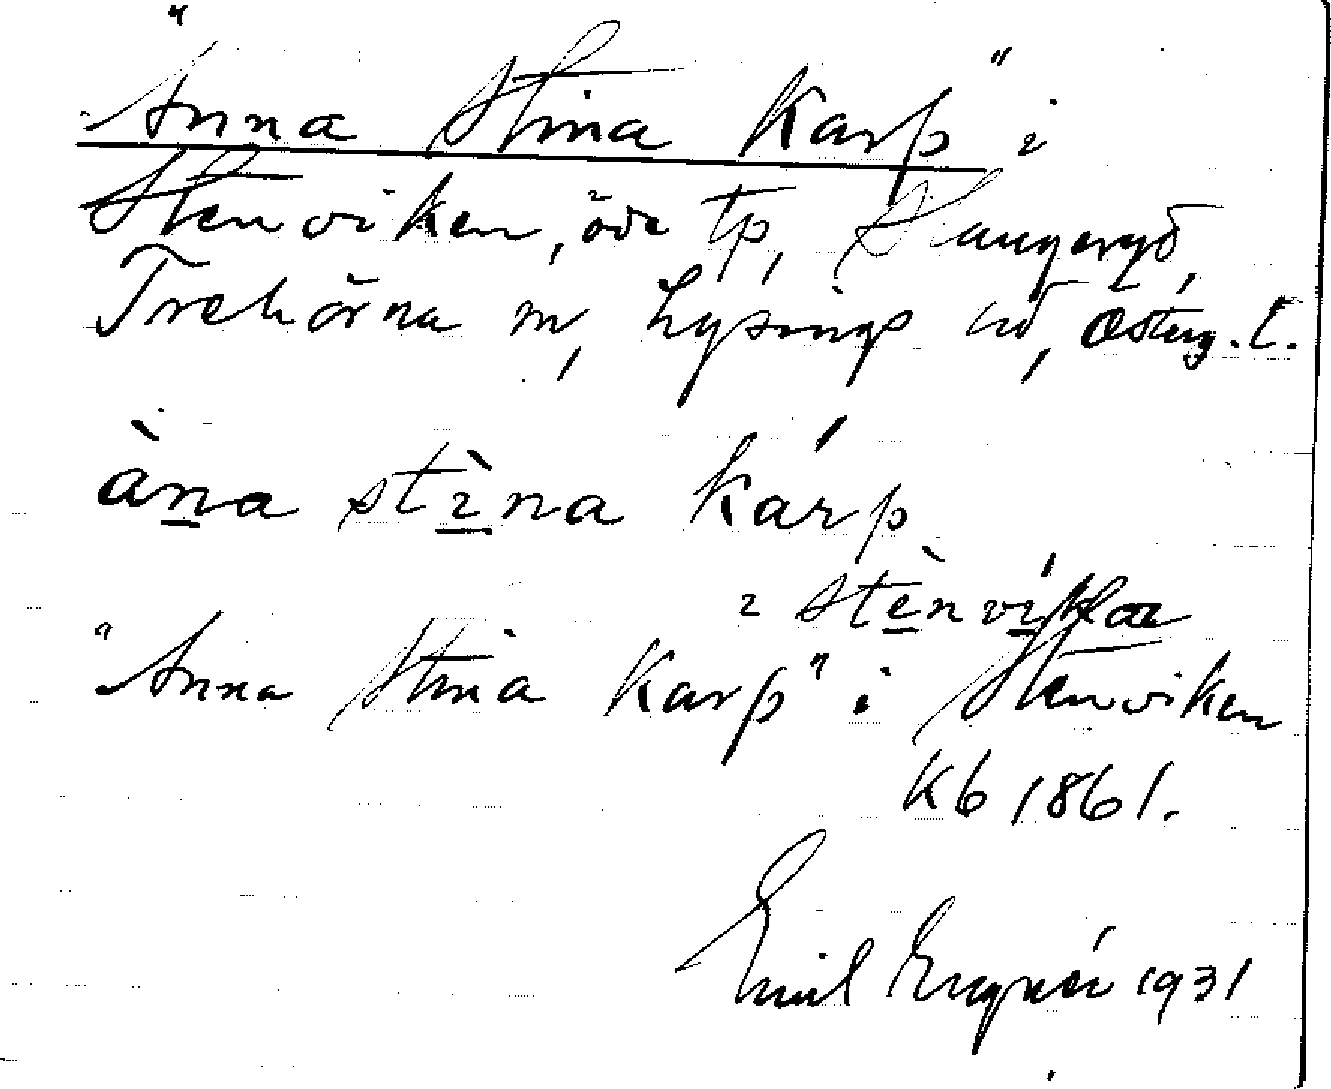 "Anna Stina Karp" i
Stenviken, öde tp, Slangeryd,
Trehörna sn, Lysings hd, Österg. l.
àna stìna kárp
i stènvíkan
"Anna Stina Karp" i Stenviken
Kb 1861.
Emil 1931